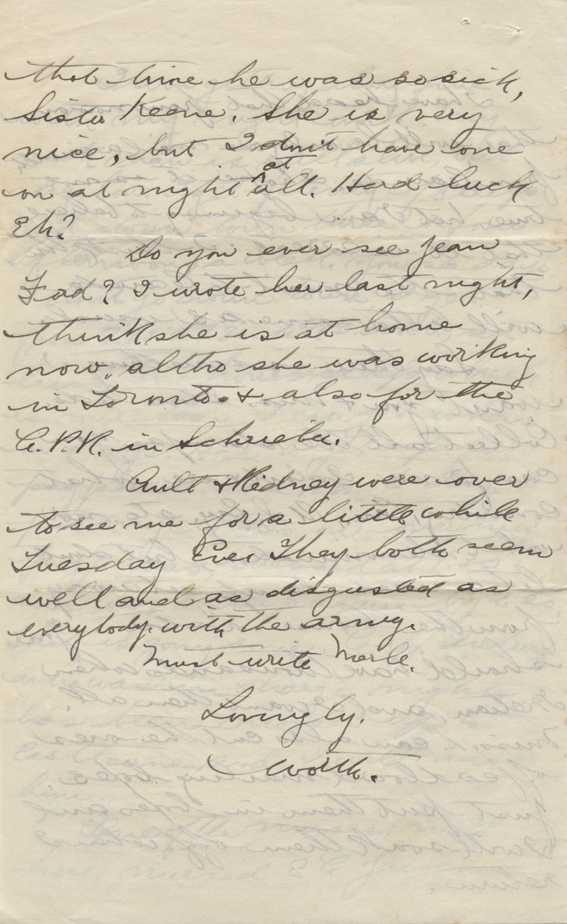 that time he was so sick,
Sister Keane. She is very
nice, but I don't have one
on at night at all. Hard luck
Eh?
Do you ever see Jean
Ford? I wrote her last night,
think she is at home
now. altho she was working
in Toronto. & also for the
C.P.R. in Schrieber.
Ault & Kidney were over
to see me for a little while
Tuesday Eve. They both seem
well and as disgusted as
everybody. with the army.
Must write Merle.
Lovingly.
Worth.